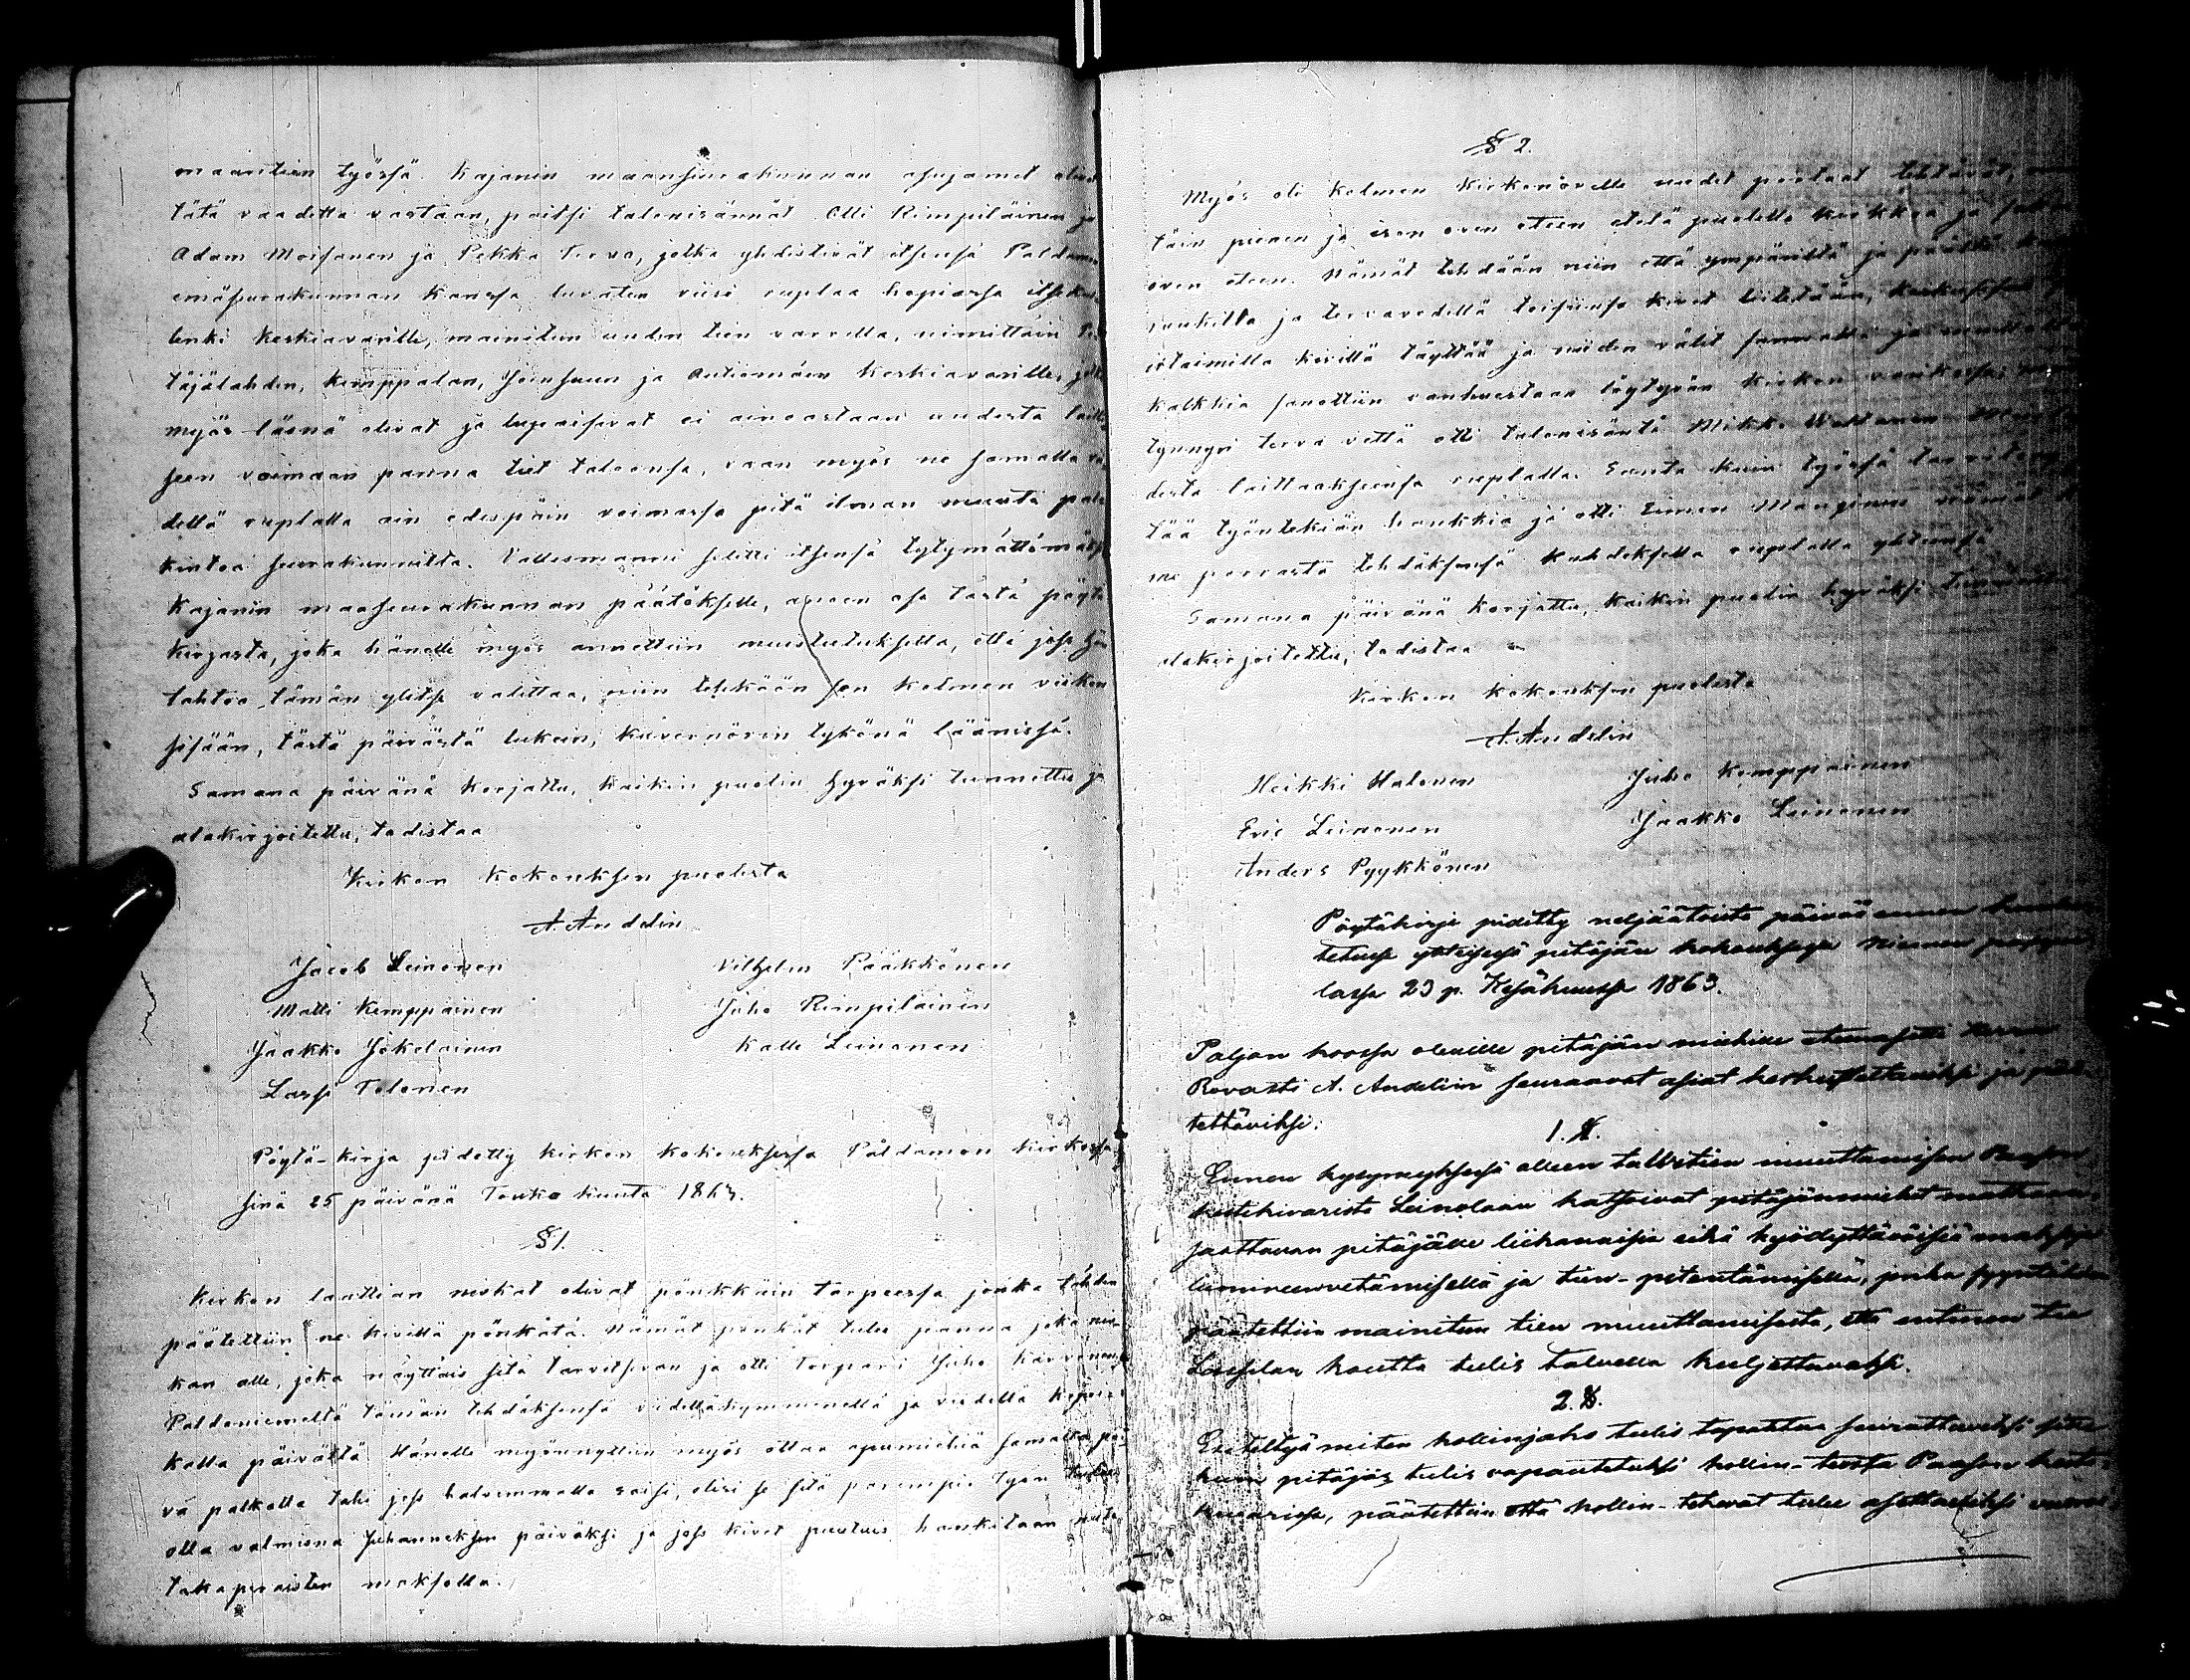 maantien työssä. Kajanin maanseurakunnan asujamet olivat
tätä vaadetta vastaan, paitsi talonisännät Olli Rimpiläinen ja
Adam Moisanen ja Pekka Terva, jotka yhdistivät itsensä Paldamon
emäseurakunnan kanssa luvaten viisi ruplaa hopiassa itsekus-
lenki keskiavarille, mainitun uuden tien varrella, nimittäin
täjälahden, Kemppalan, Joensuun ja Antiomäen keskiavarille, jotka
myös läsnä olivat ja lupaisivat ei ainoastaan uudesta laitto-
seen voimaan panna tiet taloonsa, vaan myös ne samalla vii-
dellä ruplalla ain edespäin voimassa pitä ilman muuta pal-
kintoa seurakunnilta. Vallesmanni selitti itsensä tytymättömäksi
Kajanin maaseurakunnan päätökselle, anoen osa tästä pöytä
kirjasta, joka hänelle myös annettiin muistutuksella, että joss hän
tahtoo tämän ylitse valittaa, niin tehkään sen kolmen viikon
sisään, tästä päivästä lukein, kuvernörin tykönä läänissä.
Samana päivänä korjattu, kaikin puolin hyväksi tunnettu ja
alakirjoitettu, todistaa
Kirkon kokouksen puolesta
A. Andelin
Jacob Leinonen Vilhelm Pääkkönen
Matti Kemppainen Juho Rimpiläinen
Jaakko Jokelainen Kalle Leinonen
Lassi Tolonen
Pöytä-kirja pidetty kirkon kokouksessa Paldamon kirkossa
sinä 25 päivänä Touko kuuta 1863.
§ 1.
Kirkon lauttian niskat olivat pönkkäin tarpeessa jonka tähden
päätettiin ne kivillä pönkätä. Nämät pönkät tulee panna joka nis-
kan alle, joka näyttäis sitä tarvitsevan ja otti torpari Juho Karvonen
Paldaniemeltä tämän tehdäksensä viidelläkymmenellä ja viidellä kopei-
kalla päivältä. Hänelle myönnyttiin myös ottaa apumiehiä samalla päi-
vä palkalla tahi joss halvemmalla saisi, olisi se sitä parempi. Työn tulee
olla valmiina Juhanneksen päiväksi ja joss kivet puutuis hankitaan
takaperäisten maksolla.
§ 2.
Myös oli kolmen kirkonovelle uudet portaat tehtävät,
täin pienen ja ison oven eteen etelä puolella kirkkoa ja
oven eteen. Nämät tehdään niin että ympäriltä ja päältä
raukilla ja tervavedellä toisiinsa kivet liitetään, keskus
istaimilla kivillä täyttää ja niiden välit sannalla ja
kalkkia sanottiin vanhuestaan löytyvän kirkon varikossa,
tynnyri terva vettä otti talonisäntä Mikko
desta laittaakseensa ruplalla. Santa kuin työssä tarvitaan
tää työntekiän hankkia ja otti Eemen Manginen nämät
me porrasta tehdäksensä kahdeksalla ruplalla yhteensä.
Samana päivänä korjattu, kaikin puolin hyväksi tunnettu
alakirjoitettu, todistaa
Kirkon kokouksen puolesta
A. Andelin
Heikki Halonen Juho Kemppainen
Eric Leinonen Jaakko Leinonen
Anders Pyykkönen
Pöytäkirja pidetty neljäätoista päivää ennen kuulu-
tetussa yhteisessä pitäjän kokouksessa Niemen pappi-
lassa 23 p. Kesäkuussa 1863.
Paljon koossa oleville pitäjän miehille etennasetti herra
Rovasti A. Andelin seuraavat asiat keskusteltaviksi ja pää-
tettäviksi:
1. §.
Ennen kysymyksessä olleen talvitien muuttamisen Paason
kestikivarista Leinolaan katsoivat pitäjänmiehet matkaan-
saattavan pitäjälle liikanaisia eikä hyödyttäväisiä maksoja
lumireenvetämisellä ja tien-pitentämisellä, jonka
päätettiin mainitun tien muuttamisesta, että entinen tie
Lassilan kautta tulis talvella kuljettavaksi.
2. §.
Esiteltyä miten hollinjako tulis tapahtua seurattavaksi sitte
kuin pitäjäs tulis vapautetuksi hollin-teosta Paason kesti-
kivarissa, päätettiin että hollin-tekevät tulee asettaviksi